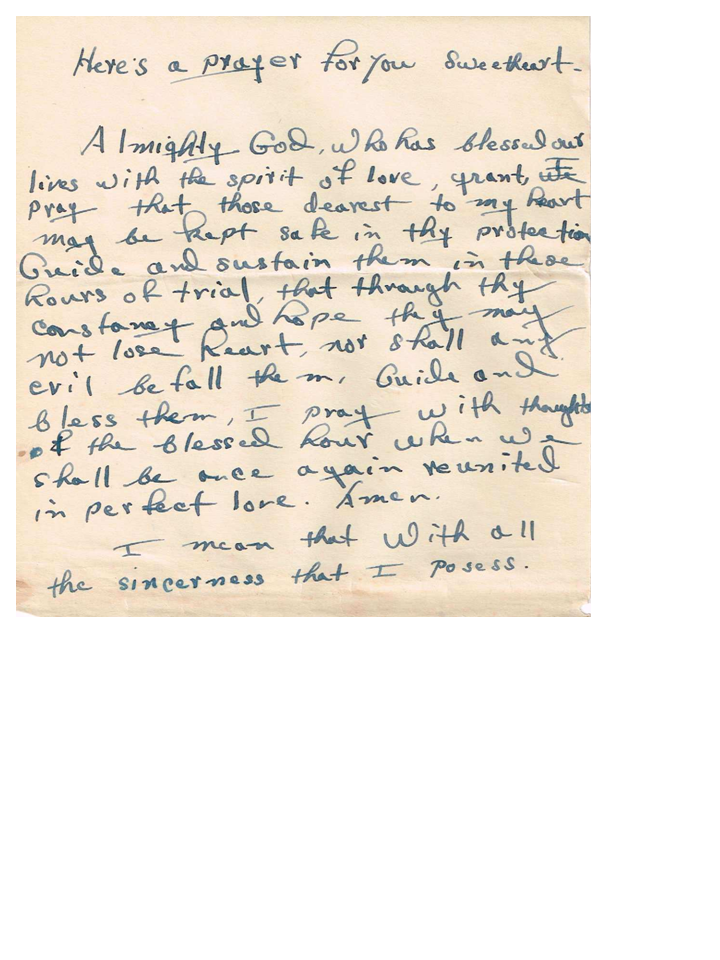 Here's a prayer for you sweetheart.
Almighty God, who has blessed our
lives with the spirit of love, grant, I
pray that those dearest to my heart
may be kept safe in thy protection
Guide and sustain them in these
hours of trial, that through thy
constancy and hope they may
not lose heart, nor shall any
evil befall them. Guide and
bless them, I pray with thoughts
of the blessed hour when we
shall be once again reunited
in perfect love. Amen.
I mean that with all
the sincerness that I posess.